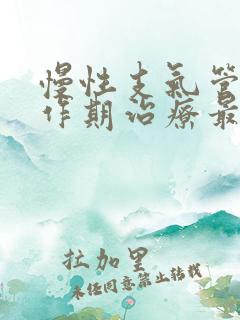 慢性支氣管
作期治療最
拉加里
未经同意禁止转载